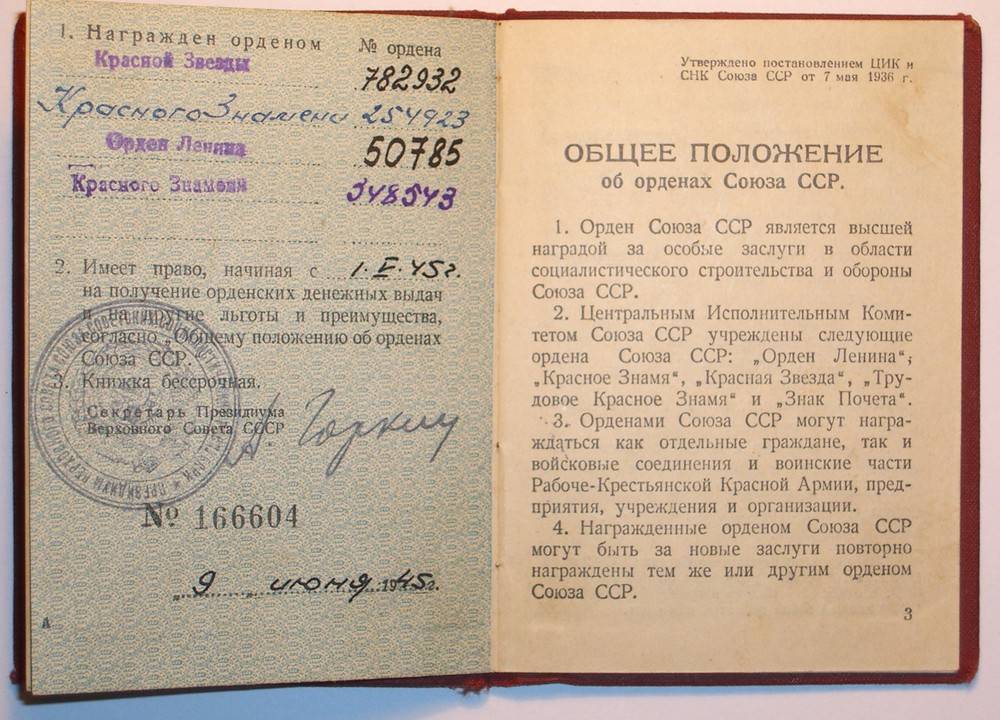 1. Награжден орденом № ордена
Красной Звезды 782932
Красного Знамени 254923
Орден Ленина 50785
Красного Знамени 348543
2. Имеет право, начиная с 1.V.45г.
на получение орденских денежных выдач
и на другие льготы и преимущества,
согласно „Общему положению об орденах
Союза ССР.
3. Книжка бессрочная.
Секретарь Президиума
Верховного Совета СССР
А Горкин
№ 166604
„9„ июня 1945г.
А
Утверждено постановлением ЦИК и
СНК Союза ССР от 7 мая 1936 г.
ОБЩЕЕ ПОЛОЖЕНИЕ
об орденах Союза ССР.
1. Орден Союза ССР является высшей
наградой за особые заслуги в области
социалистического строительства и обороны
Союза ССР.
2. Центральным Исполнительным Коми-
тетом Союза ССР учреждены следующие
ордена Союза ССР: „Орден Ленина“,
„Красное Знамя“, „Красная Звезда“, „Тру-
довое Красное Знамя“ и „Знак Почета“.
3. Орденами Союза ССР могут награ-
ждаться как отдельные граждане, так и
войсковые соединения и воинские части
Рабоче-Крестьянской Красной Армии, пред-
приятия, учреждения и организации.
4. Награжденные орденом Союза ССР
могут быть за новые заслуги повторно
награждены тем же или другим орденом
Союза ССР.
3